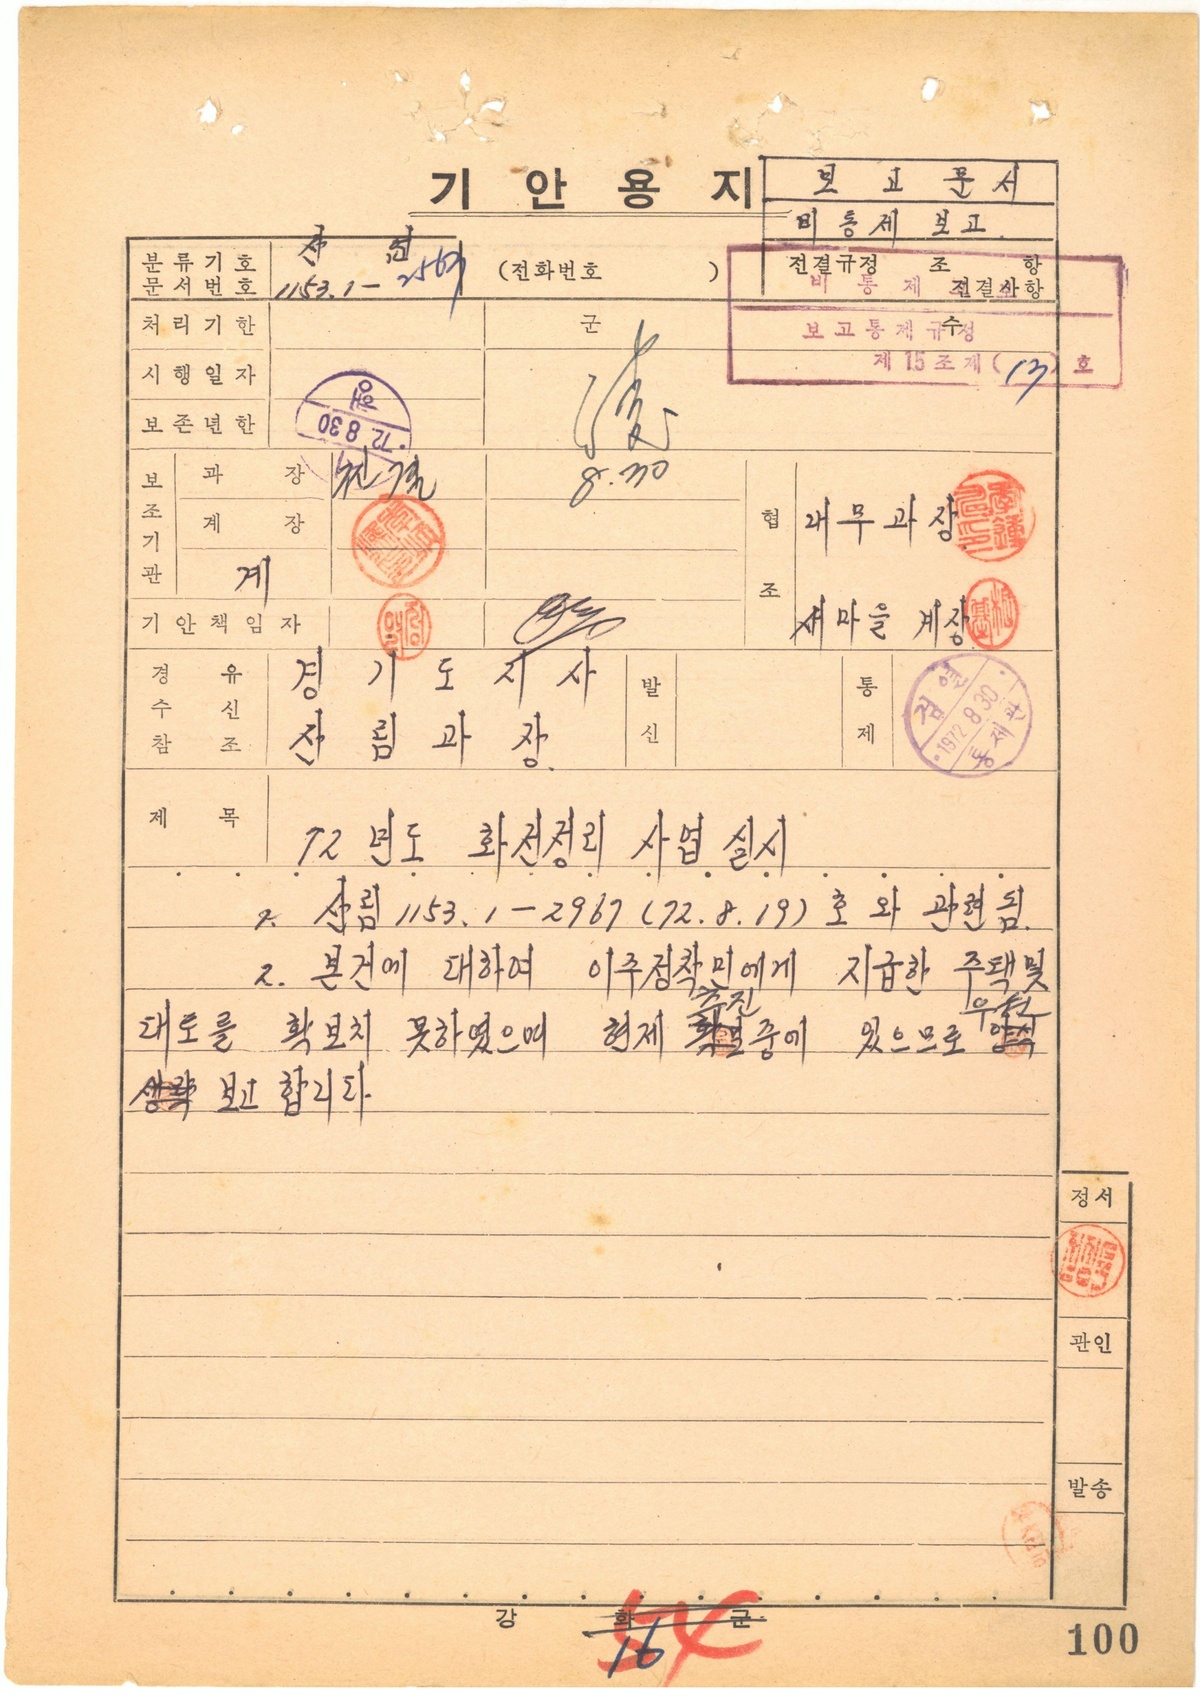 기 안 용 지
보 고 문 서
비통제 보고.
분류기호 문서번호
산 림
1153.1-2569
(전화번호 )
전결규정 조 항
전결사항
비 통 제
보고통제규정
제15조제(13)호
처리기한
군 수
시행일자
보존년한
72.8.30
8.30
보조기관
과 장
전결
계 장
계
협조
재무과장
새마을 계장
기안책임자
경 유
수 신
참 조
경 기 도 지 사
산 림 과 장.
발신
통제
검열
1972.8.30.
통제관
제 목
72년도 화전정리 사업 실시
1. 산림 1153.1-2967 (72.8.19) 호와 관련됨.
2. 본건에 대하여 이주정착민에게 지급한 주택및
추진 우선
대토를 확보치 못하였으며 현제 확보중에 있으므로 양식
생략 보고 합니다
정서
관인
발송
강 화 군
54
16
100